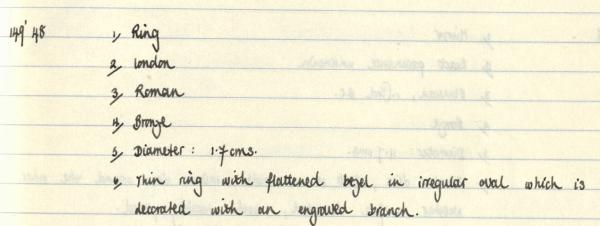 149'48 1, Ring
2, London
3, Roman
4, Bronze
5, Diameter: 1.7cms.
6, Thin ring with flattened bezel in irregular oval which is
decorated with an engraved branch.